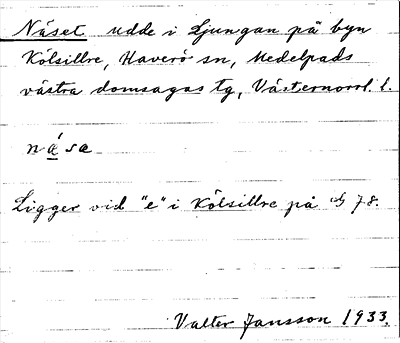 Näset udde i Ljungan på byn
Kölsillre, Haverö sn, Medelpads
västra domsagas tg, Västernorrl. l.
nása
Ligger vid "e" i Kölsillre på 78.
Valter Jansson 1933.